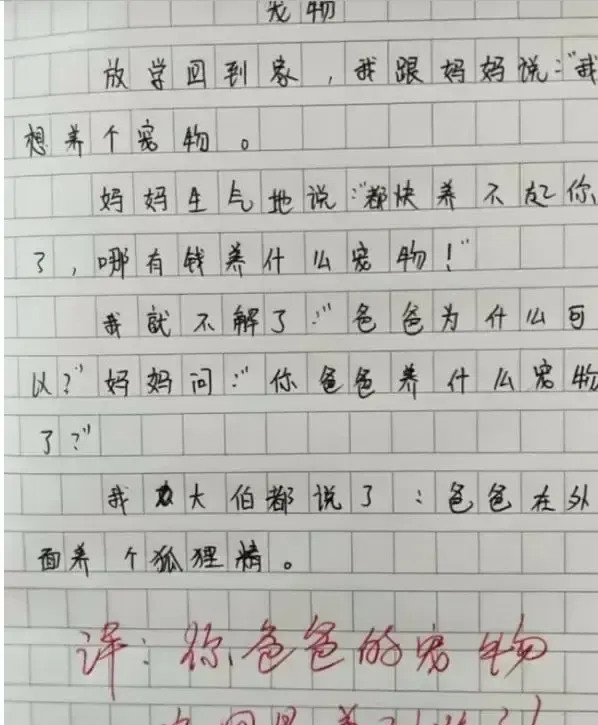 宠物
放学回到家，我跟妈妈说："我
想养个宠物。
妈妈生气地说："都快养不起你
了，哪有钱养什么宠物！"
我就不解了："爸爸为什么可
以？"妈妈问："你爸爸养什么宠物
了？"
我大伯都说了：爸爸在外
面养个狐狸精。
评：你爸爸的宠物